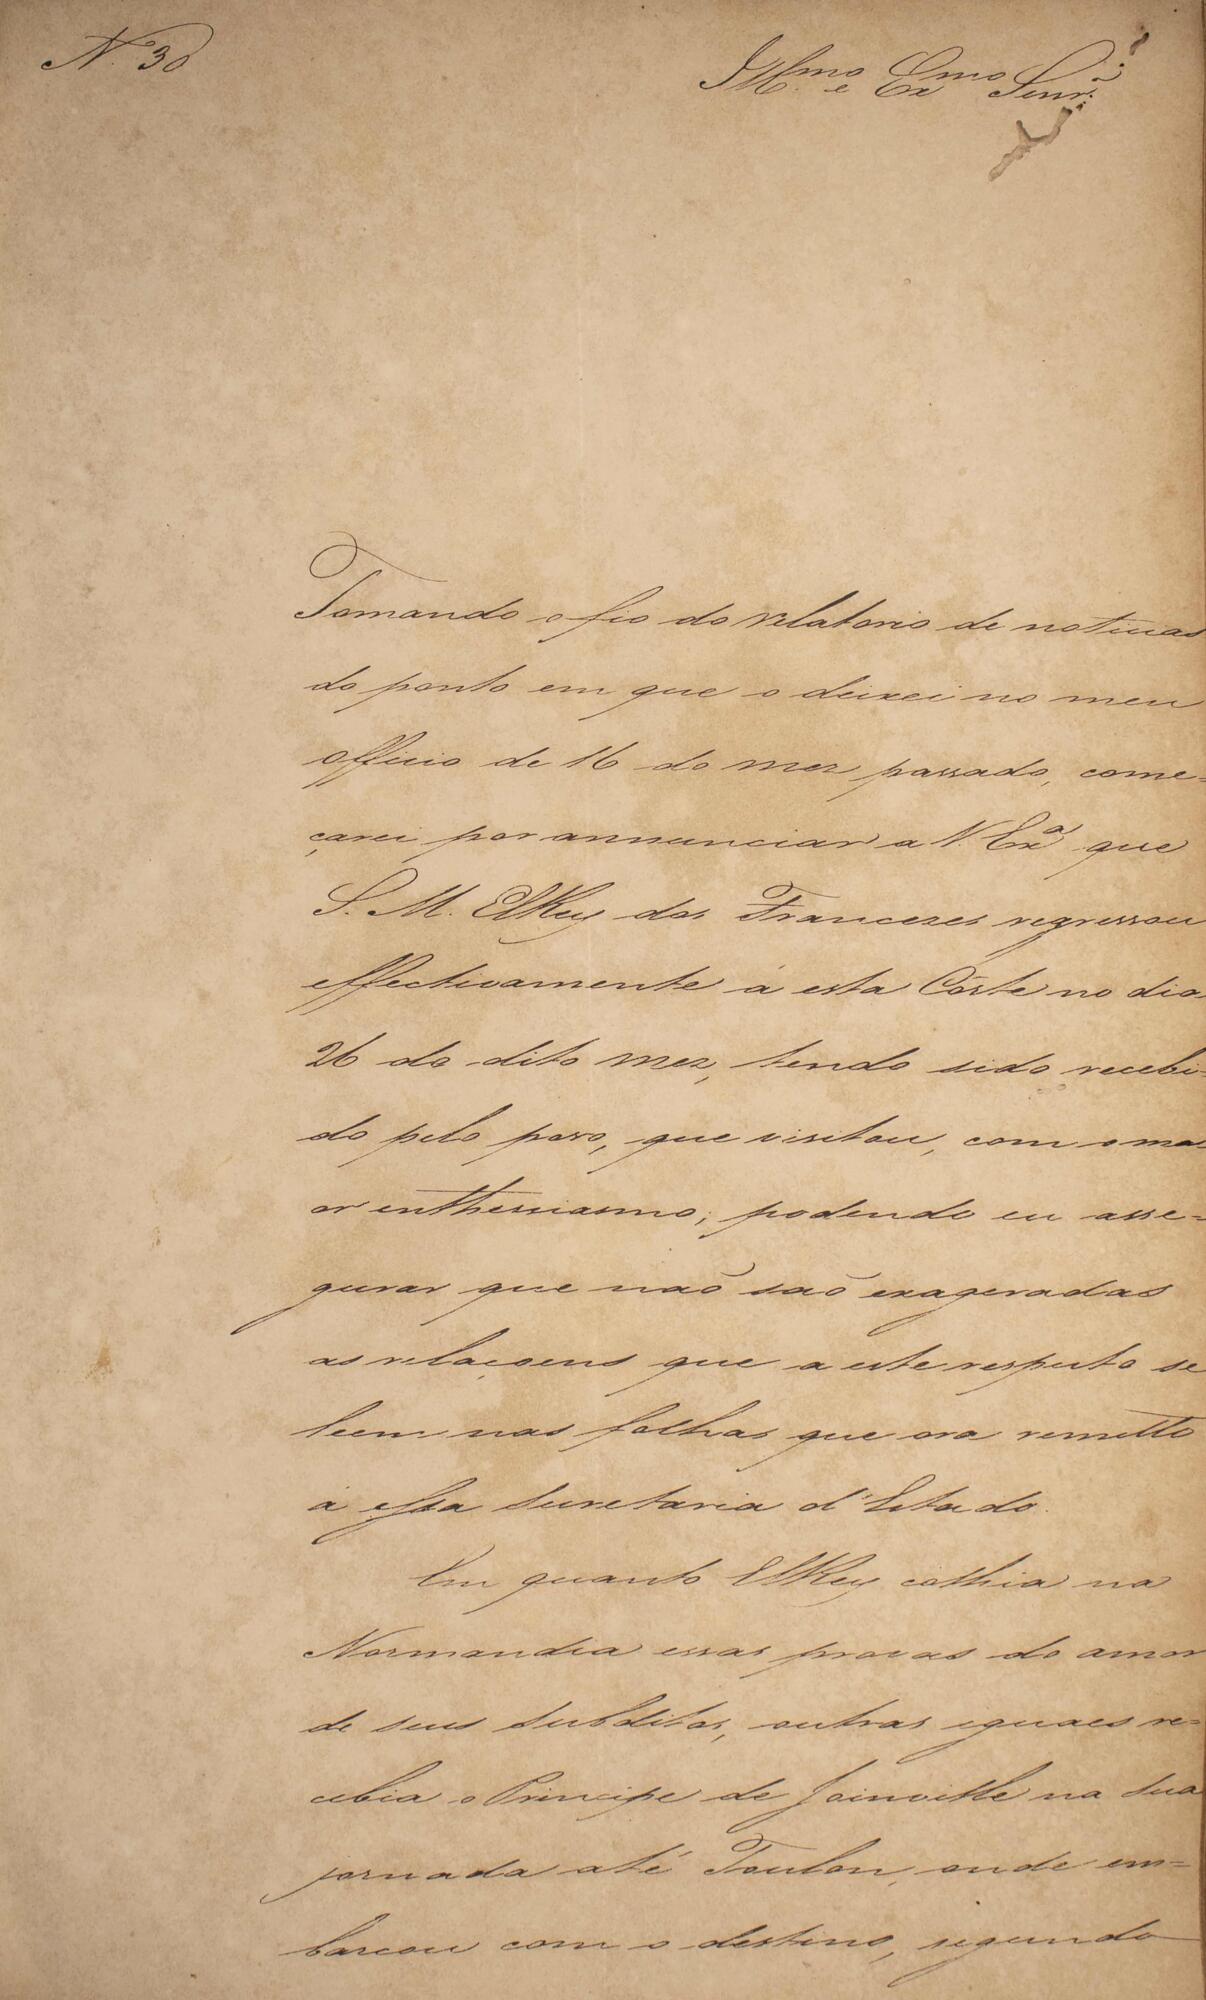 N. 30
Illmo e Exmo Senr.
Tomando o fio do relatorio de noticias
do ponto em que o deixei no meu
officio de 16 do mez passado, come-
çarei por annunciar a V. Exa que
S. M. ElRey dos Francezes regressou
effectivamente á esta Côrte no dia
26 do dito mez, tendo sido recebi-
do pelo povo, que visitou, com o mai-
or enthusiasmo; podendo eu asse-
gurar que naõ saõ exageradas
as relaçoens que a este respeito se
leem nas folhas que ora remetto
á essa Secretaria d'Estado.
Em quanto ElRey colhia na
Normandia essas provas do amor
de seus subditos, outras iguaes re-
cebia o Principe de Joinville na sua
jornada até Toulon, onde em-
barcou com o destino, segundo